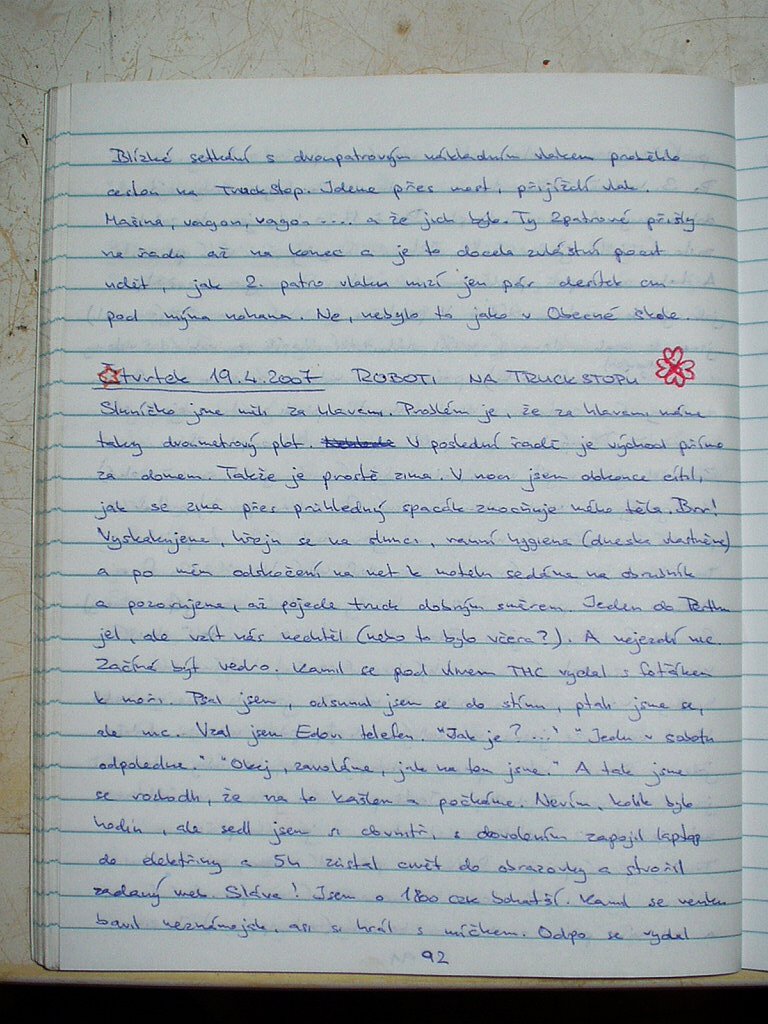 Blízké setkání s dvoupatrovým nákladním vlakem proběhlo
cestou na TruckStop. Jdeme přes most, přijíždí vlak.
Mašina, vagon, vagon .... a že jich bylo. Ty 2patrové přišly
na řadu až na konec a je to docela zvláštní pocit
vidět, jak 2. patro vlaku mizí jen pár desítek cm
pod mýma nohama. Ne, nebylo to jako v Obecné škole.
Čtvrtek 19.4.2007 ROBOTI NA TRUCKSTOPU
Sluníčko jsme měli za hlavami. Problém je, že za hlavami máme
taky dvoumetrový plot. V poslední řadě je východ přímo
za domem. Takže je prostě zima. V noci jsem dokonce cítil,
jak se zima přes průhledný spacák zmocňuje mého těla. Brr!
Vyskakujeme, hřejn se na slunci, ranní hygiena (dneska vlastněne)
a po mém odskočení na net k motelu sedáme na obrubník
a pozorujeme, až pojede truck dobrým směrem. Jeden do Perthu
jel, ale vzít nás nechtěl (nebo to bylo včera?). A nejezdí nic.
Začíná být vedro. Kamil se pod vlivem THC vydal s foťákem
k moři. Psal jsem, odsunul jsem se do stínu, ptali jsme se,
ale nic. Vzal jsem Edovi telefon. "Jak je? ..." "Jedu v sobotu
odpoledne." "Okej, zavoláme, jak na tom jsme." A tak jsme
se rozhodli, že na to kašlem a počkáme. Nevím, kolik bylo
hodin, ale sedl jsem si dovnitř, s dovolením zapojil laptop
do elektřiny a 5h zůstal čumět do obrazovky a stvořil
zadaný web. Sláva! Jsem o 1800 czk bohatší. Kamil se venku
bavil neznámojak, asi si hrál s míčkem. Odpo se vydal
92